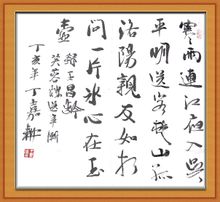 寒雨連江夜入吳
平明送客楚山孤
洛陽親友如相
問一片冰心在玉
壺
錄王昌齡
芙蓉樓送辛漸
丁亥年丁嘉耕